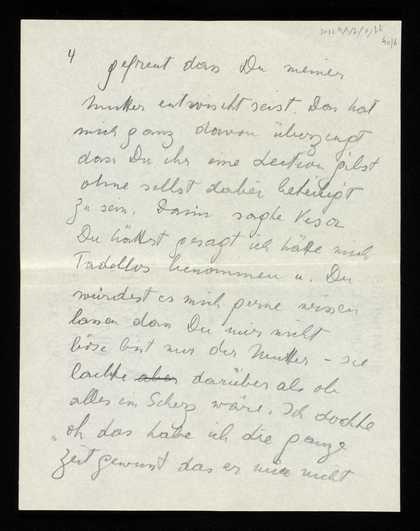 4 gefreut dass Du meiner
Mutter entwischt seist. Das hat
mich ganz davon überzeugt
dass Du ihr eine Lection gibst
ohne selbst dabei beteiligt
zu sein. Dann sagte
Du hättest gesagt ich hätte mich
Tadellos benommen u. Du
würdest es mich gerne wissen
lassen dass Du mir nicht
böse bist nur der Mutter – sie
lachte aber darüber als ob
alles ein Scherz wäre. Ich dachte
"oh das habe ich die ganze
Zeit gewusst das er mir nicht